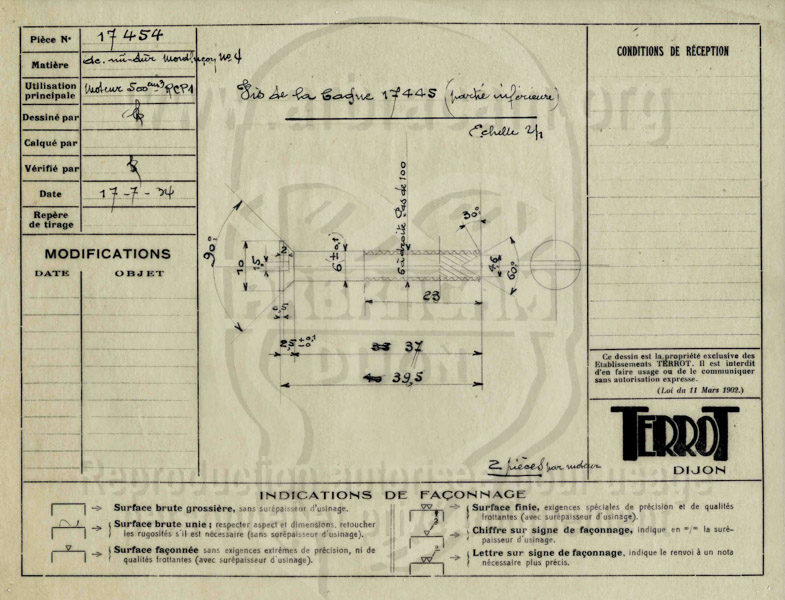 Pièce Nº 17454
Matière ac. mi-dur Montluçon Nº 4
Utilisation principale Moteur 500 cm³ RCP1
Dessiné par
Calqué par
Vérifié par
Date 17-7-34
Repère de tirage
MODIFICATIONS
DATE OBJET
Vis de la bague 17445 (partie inférieure)
Echelle 2/1
CONDITIONS DE RÉCEPTION
90°
10
1,5
2
6 ± 0,1
6 à droite Pas de 100
30°
4,6
60°
23
0,5
2,5 +0,1 -0
33 37
40 39,5
2 pièces par moteur
Ce dessin est la propriété exclusive des
Etablissements TERROT. Il est interdit
d'en faire usage ou de le communiquer
sans autorisation expresse.
(Loi du 11 Mars 1902.)
TERROT
DIJON
INDICATIONS DE FAÇONNAGE
Surface brute grossière, sans surépaisseur d'usinage.
Surface brute unie ; respecter aspect et dimensions, retoucher
les rugosités s'il est nécessaire (sans surépaisseur d'usinage).
Surface façonnée sans exigences extrêmes de précision, ni de
qualités frottantes (avec surépaisseur d'usinage).
Surface finie, exigences spéciales de précision et de qualités
frottantes (avec surépaisseur d'usinage).
Chiffre sur signe de façonnage, indique en m/m la suré-
paisseur d'usinage.
Lettre sur signe de façonnage, indique le renvoi à un nota
nécessaire plus précis.